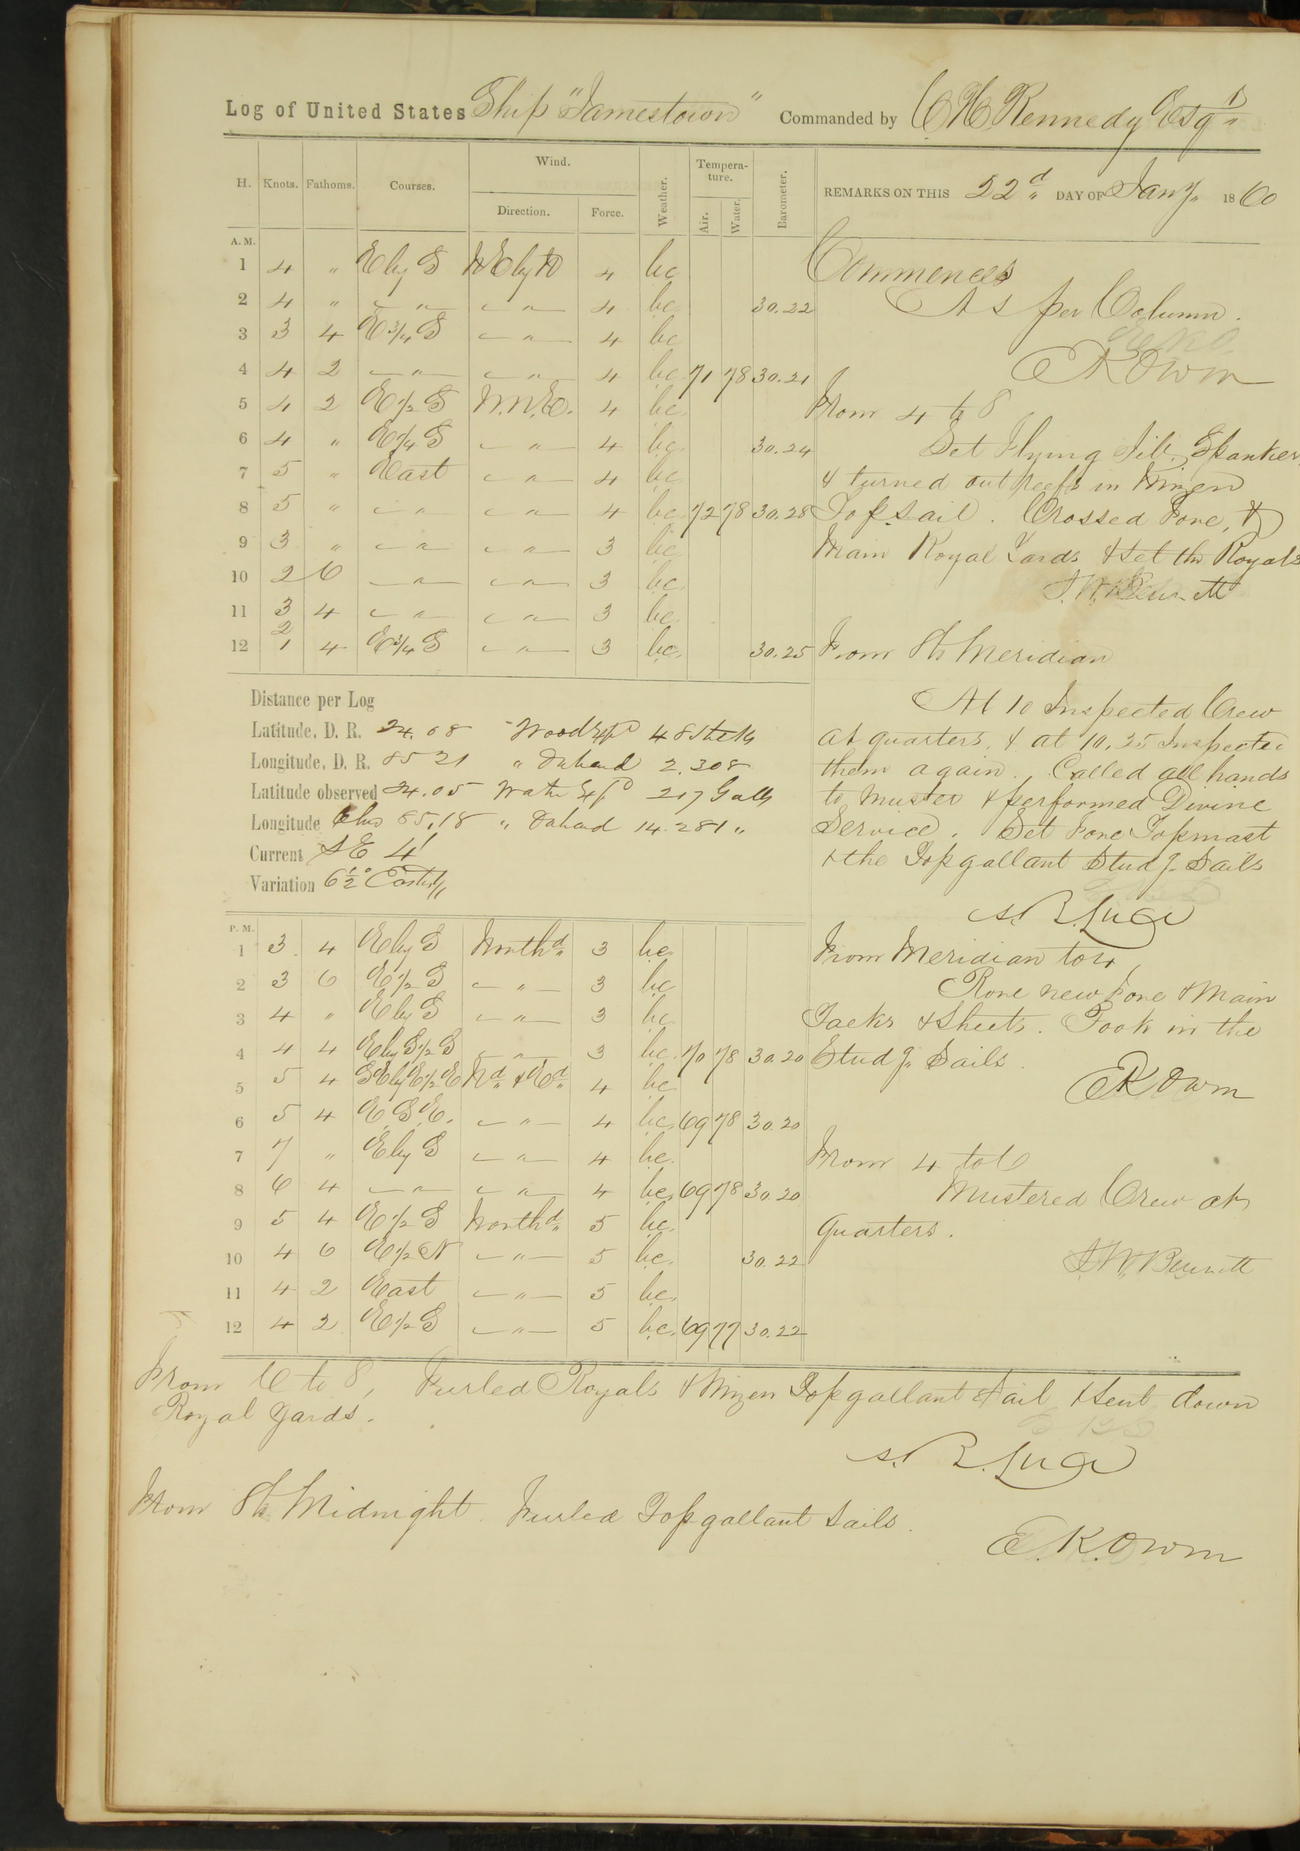 Log of United States Ship "Jamestown" Commanded by C H Kennedy Esqr
H. Knots. Fathoms. Courses. Wind. Direction. Force. Weather. Tempera-ture. Air. Water. Barometer.
REMARKS ON THIS 22d DAY OF Jany. 1860
A. M.
1 4 " E by S N E by N 4 bc
2 4 " " " 4 bc 30.22
3 3 4 E 3/4 S " 4 bc
4 4 2 " " 4 bc 71 78 30.21
5 4 2 E 1/2 S N.N.E. 4 bc
6 4 " E 1/4 S " 4 bc 30.24
7 5 " East " 4 bc
8 5 " " " 4 bc 72 78 30.28
9 3 " " " 3 bc
10 2 6 " " 3 bc
11 3 4 " " 3 bc
12 2 1 4 E 3/4 S " 3 bc 30.25
Commences
As per Column.
E K Owen
From 4 to 8
Set Flying Jib, Spanker,
& turned out reefs in Mizen
Topsail. Crossed Fore, &
Main Royal Yards & set the Royals
J. W. Bennett
From 8 to Meridian
At 10 Inspected Crew
at quarters, & at 10.35 Inspected
them again. Called all hands
to muster & performed Divine
Service. Set Fore Topmast
& the Topgallant Studg Sails
S. B. Luce
Distance per Log
Latitude, D. R. 24.08 Wood Expd 48 sticks
Longitude, D. R. 85 21 " On hand 2.308
Latitude observed 24.05 Water Expd 217 Galls
Longitude Chro 85.18 " On hand 14.281 "
Current SE 4'
Variation 6 1/2° Easterly
P. M.
1 3 4 E by S Northd 3 bc
2 3 6 E 1/2 S " 3 bc
3 4 " E by S " 3 bc
4 4 4 E by S 1/2 S " 3 bc 70 78 30.20
5 5 4 SE by E 1/2 E Nd & Ed 4 bc
6 5 4 E.S.E. " 4 bc 69 78 30.20
7 7 " E by S " 4 bc
8 6 4 " " 4 bc 69 78 30.20
9 5 4 E 1/2 S Northd 5 bc
10 4 6 E 1/2 N " 5 bc 30.22
11 4 2 East " 5 bc
12 4 2 E 1/2 S " 5 bc 69 77 30.22
From Meridian to 4
Rove new Fore & Main
Tacks & Sheets. Took in the
Studg Sails.
E K Owen
From 4 to 6
Mustered Crew at
quarters.
J. W. Bennett
From 6 to 8, Furled Royals & Mizen Topgallant Sail & sent down
Royal yards.
S. B. Luce
From 8 to Midnight. Furled Topgallant Sails.
E. K. Owen